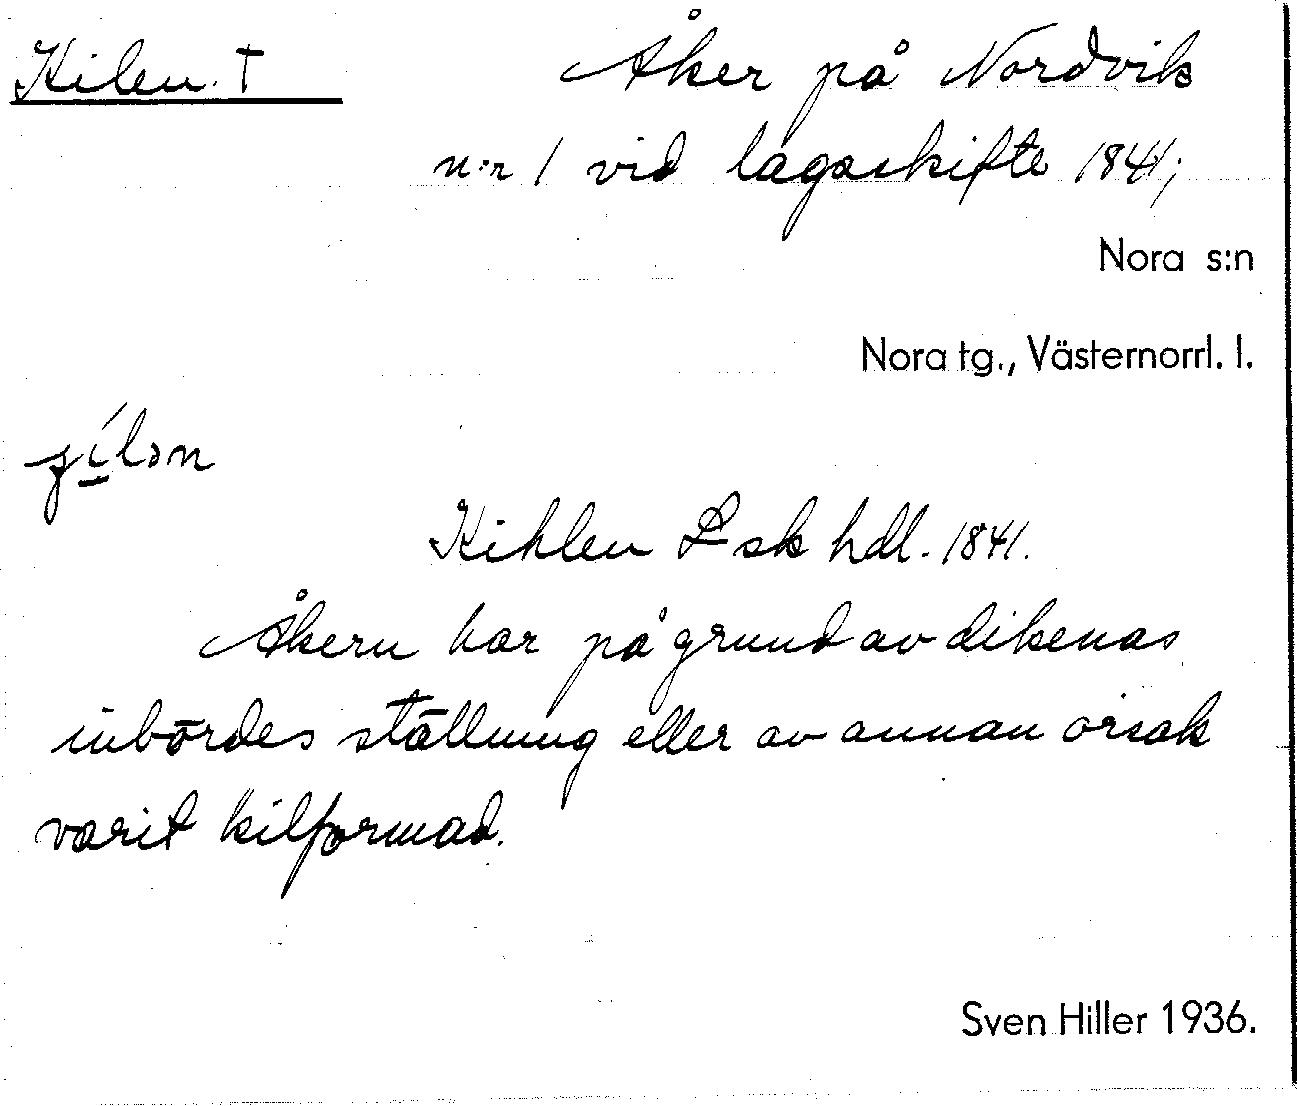 Kilen. † Åker på Nordvik
n:r 1 vid lagaskifte 1841;
Nora s:n
Nora tg., Västernorrl. l.
Kihlen L sk hdl. 1841.
Åkern har på grund av dikenas
inbördes ställning eller av annan orsak
varit kilformad.
Sven Hiller 1936.